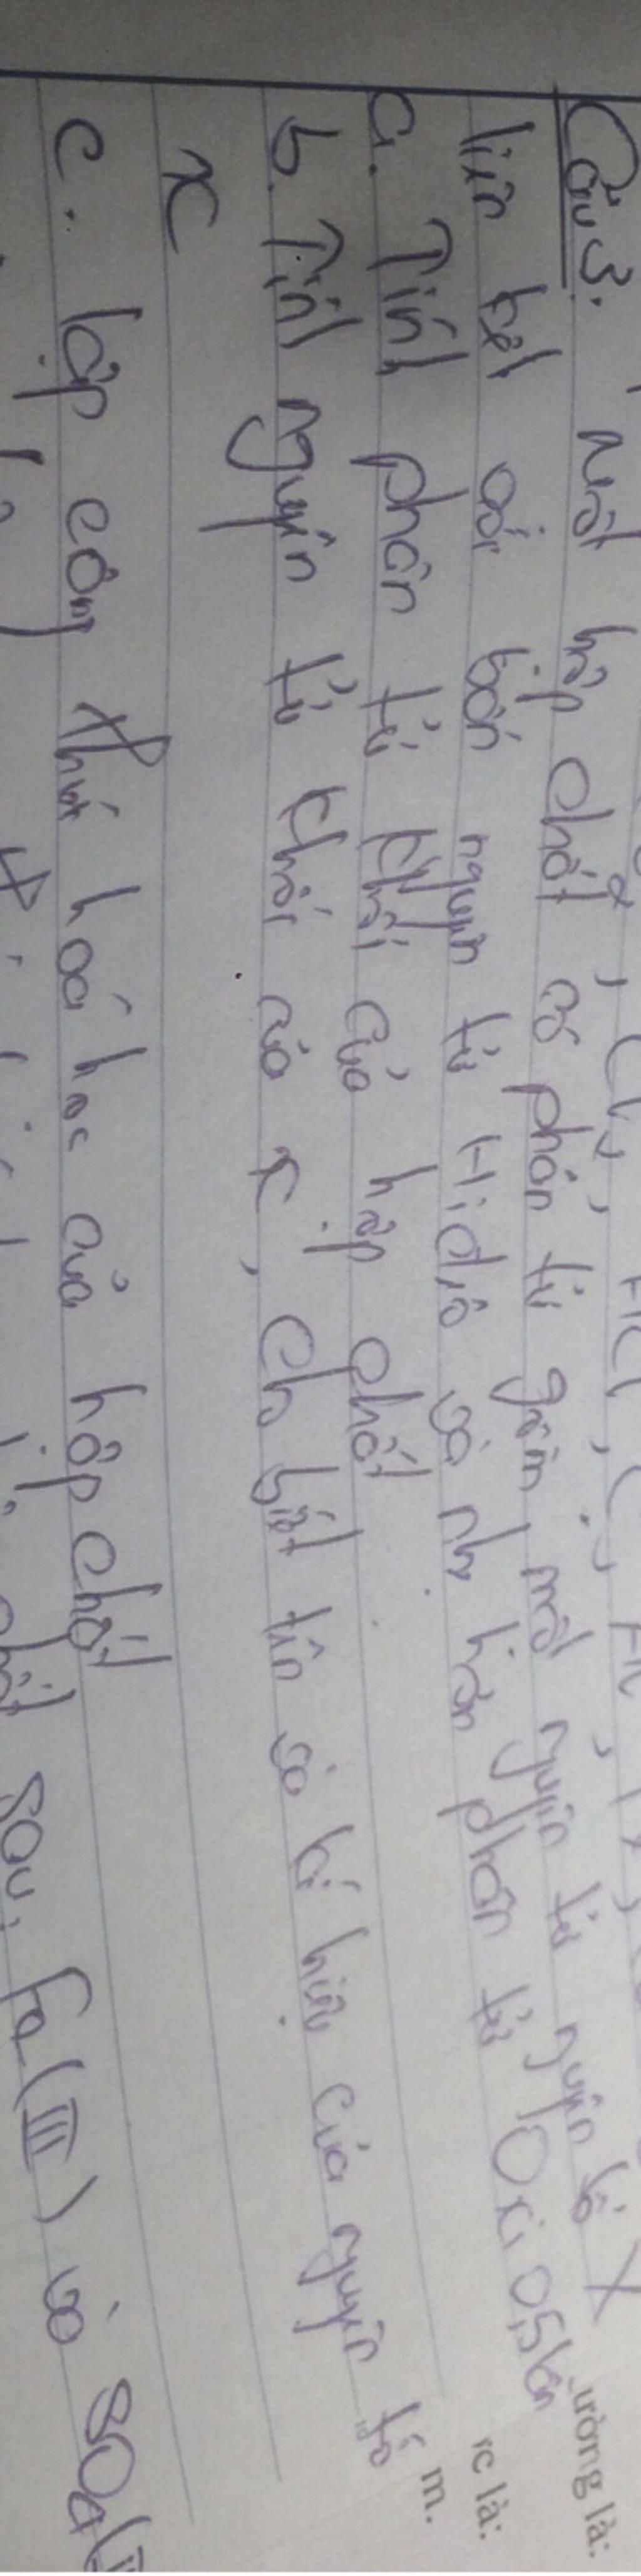 Câu 3. Một hợp chất có phân tử gồm một nguyên tử nguyên tố X
liên kết với bốn nguyên tử Hiđrô và nhẹ hơn phân tử Oxi 0,5 lần
a. Tính phân tử khối của hợp chất
b. Tính nguyên tử khối của X, cho biết tên và kí hiệu của nguyên tố
X
c. lập công thức hoá học của hợp chất
sau. Fe(III) và SO4(
ường là:
ực là:
m.